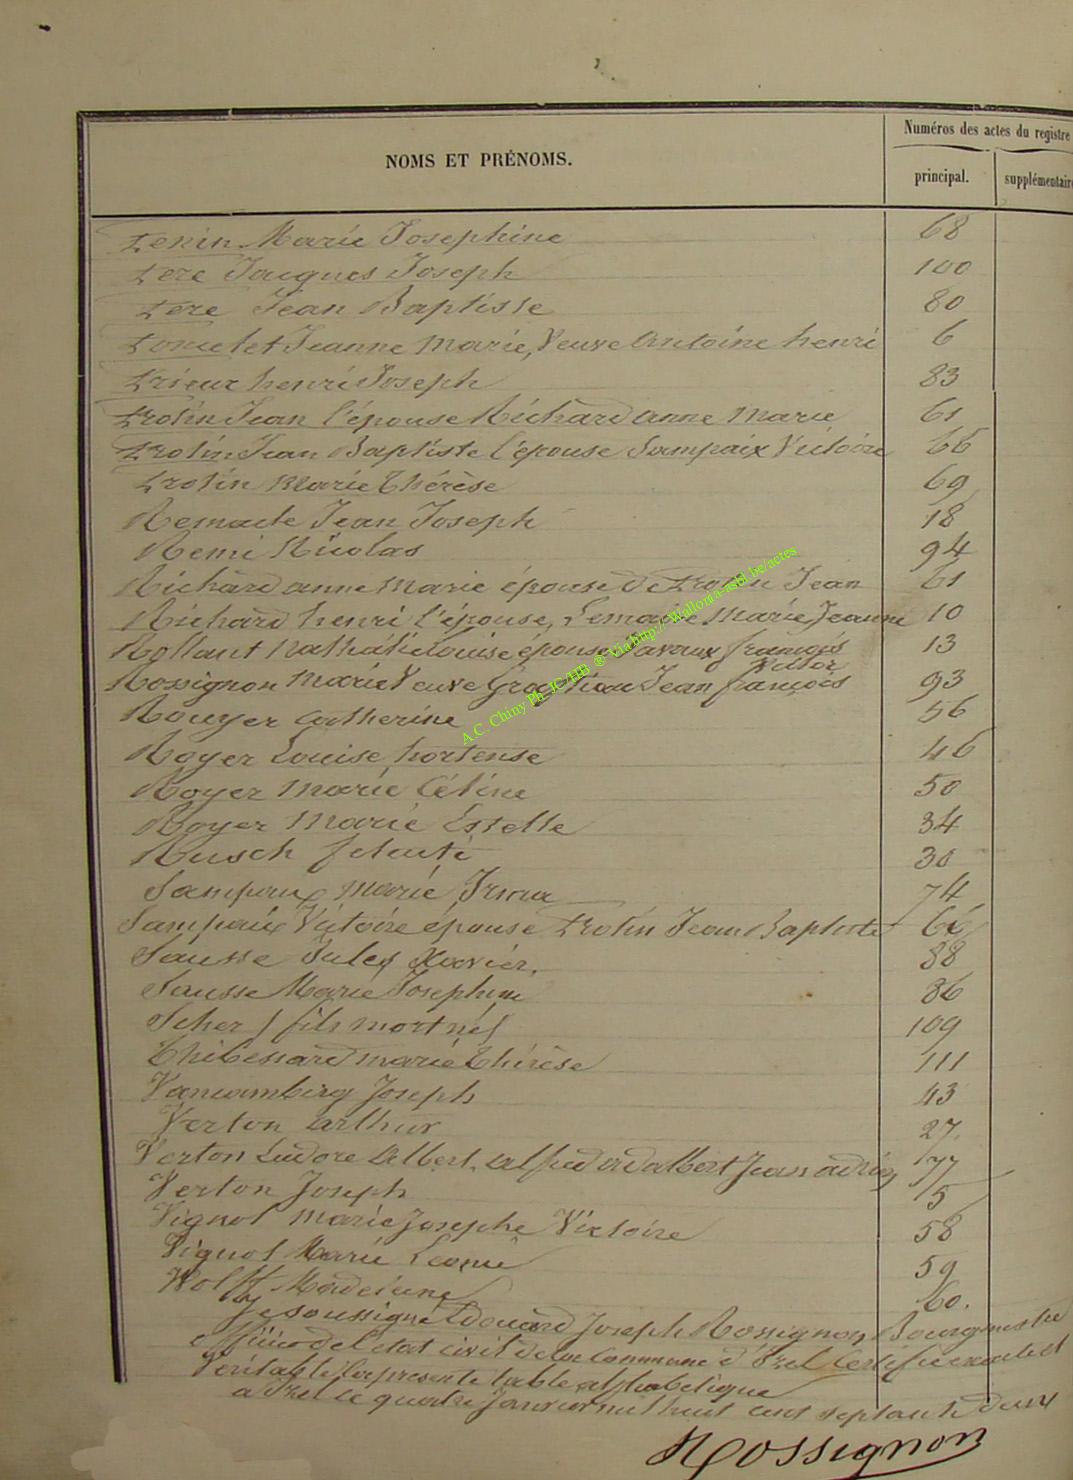 Numéros des actes du registre
NOMS ET PRÉNOMS.
principal.
supplémentaire
Penin Marie Josephine 68
Père Jacques Joseph 100
Père Jean Baptiste 80
Poncelet Jeanne Marie, Veuve Antoine henri 6
Prieur henri Joseph 83
Protin Jean l'épouse Richard anne Marie 61
Protin Jean Baptiste l'épouse Sampaix Victoire 66
Protin Marie Thérèse 69
Remacle Jean Joseph 18
Remi Nicolas 94
Richard anne Marie épouse de Protin Jean 61
Richard henri l'épouse, Lemaire Marie Jeanne 10
Rollant Nathalie Louise épouse françois 13
Victor
Rossignon Marie Veuve Jean françois 93
Rouyer Catherine 56
Royer Louise hortense 46
Royer Marie Céline 50
Royer Marie Estelle 34
Rusch felicité 30
Sampaix Marie Irma 74
Sampaix Victoire épouse Protin Jean Baptiste 66
Sausse Jules Xavier. 88
Sausse Marie Josephine 86
Scher / fils mort né / 109
Thibessard marie Thérèse 111
Joseph 43
Verton arthur 27.
Verton albert alfred adalbert Jean adrien 77
Verton Joseph 5
Vignol Marie Josephe Victoire 58
Vignol Marie Leonie 59
Wolff Madeleine 60.
Je soussigné Edouard Joseph Rossignon, Bourgmestre
officier de l'état civil de la Commune d'Izel Certifie exacte et
Véritable la présente table alphabétique
a Izel le quatre Janvier mil huit cent septante deux
Rossignon
A.C. Chiny Ph JC/HB ® Via http://Wallonia-asbl.be/actes